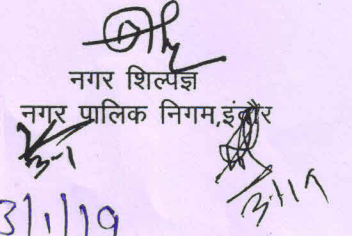 नगर शिल्पज्ञ
नगर पालिक निगम,इंदौर
3-1
3/1/19
3/1/19